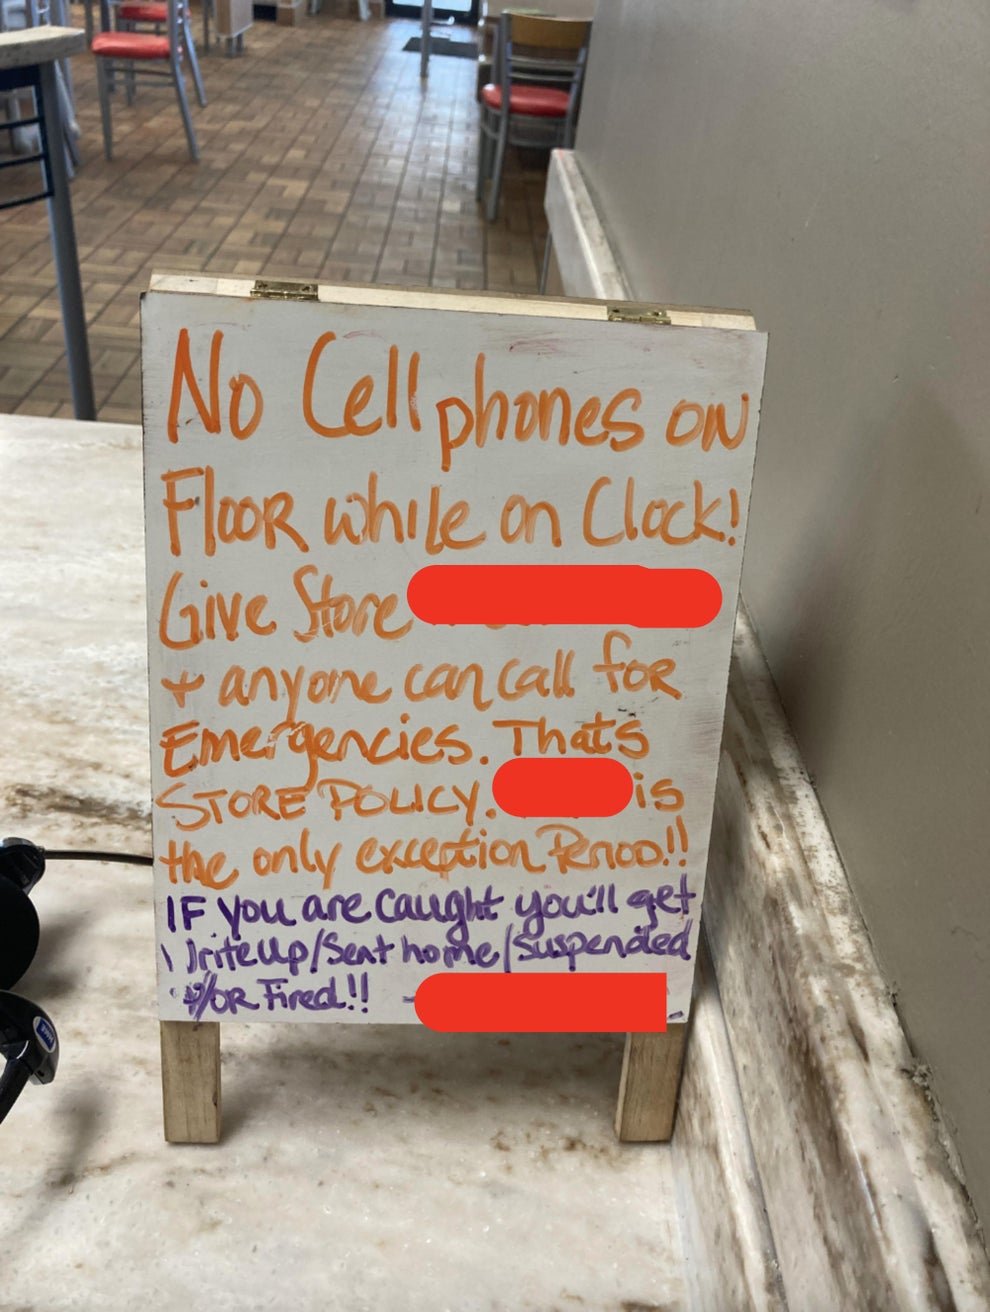 No Cell phones ON
FlooR while on Clock!
Give Store
+ anyone can call foR
Emergencies. Thats
STORE POLICY. is
the only exception PERIOD!!
IF you are caught you'll get
WriteUp/Sent home/Suspended
+/OR Fired!!